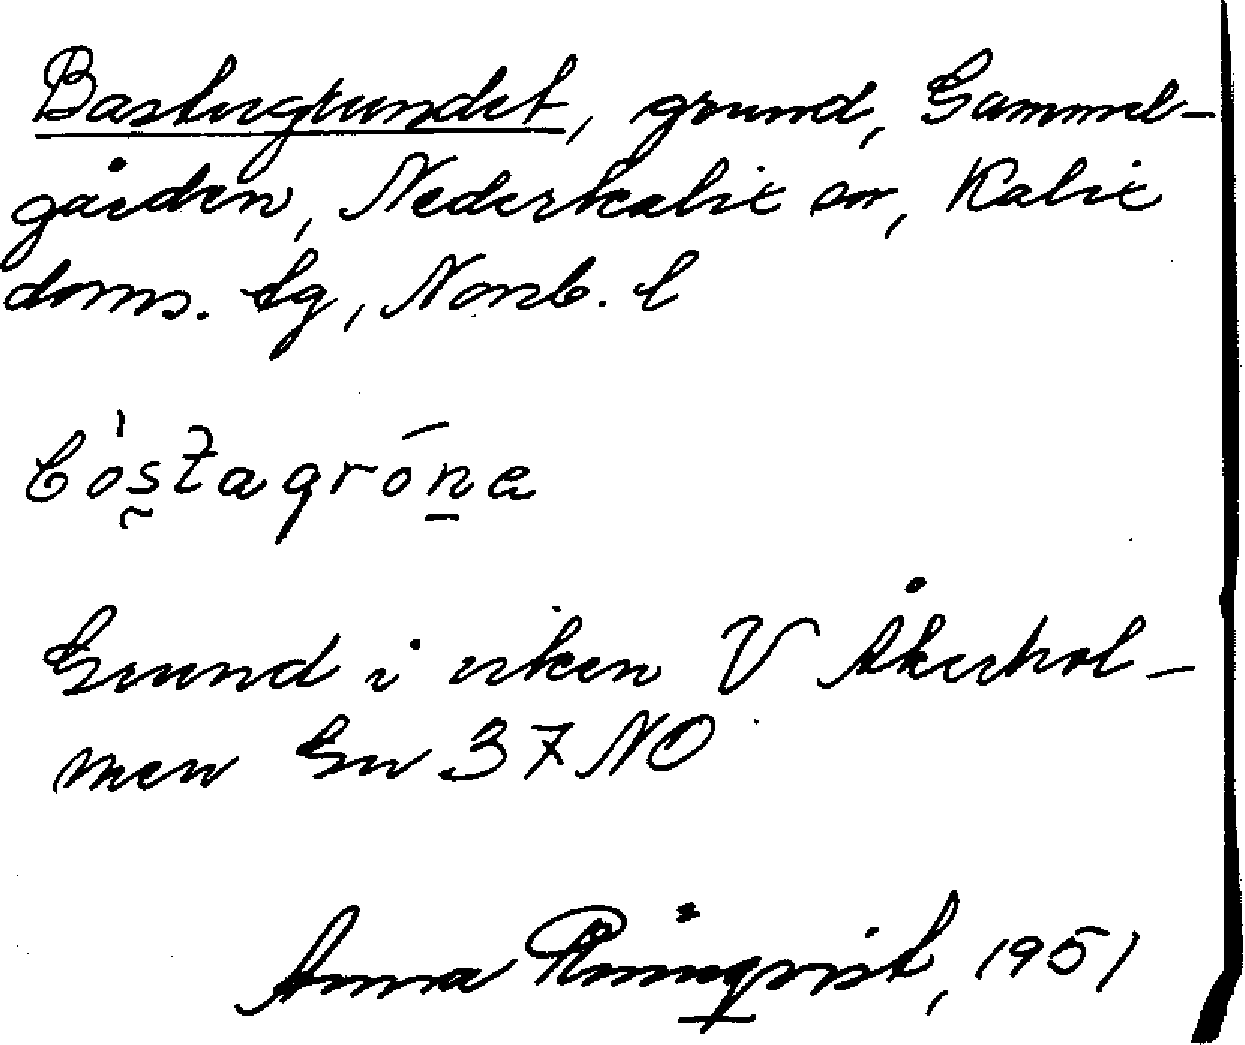 Bastugrundet, grund, Gammel-
gården, Nederkalix sn, Kalix
doms. tg, Norrb. l
Grund i viken V Åkerhol-
men Gn 37 NO
Anna Rönnqvist, 1951